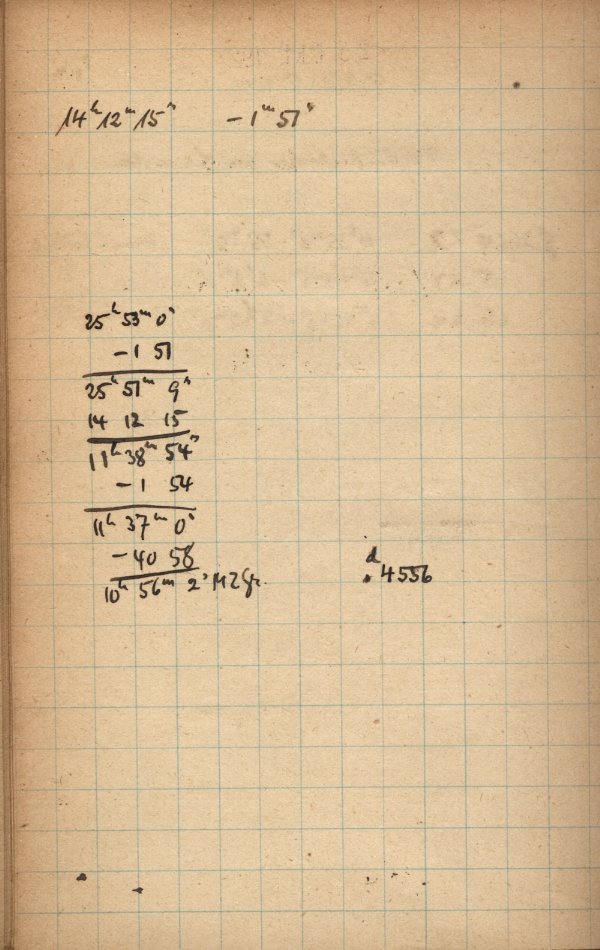 14ʰ12ᵐ15ˢ −1ᵐ51ˢ
25ʰ53ᵐ0ˢ
−1 51
25ʰ51ᵐ 9ˢ
14 12 15
11ʰ38ᵐ54ˢ
−1 54
11ʰ37ᵐ0ˢ
−40 58
10ʰ56ᵐ2ˢ MZGr.
ᵈ.4556